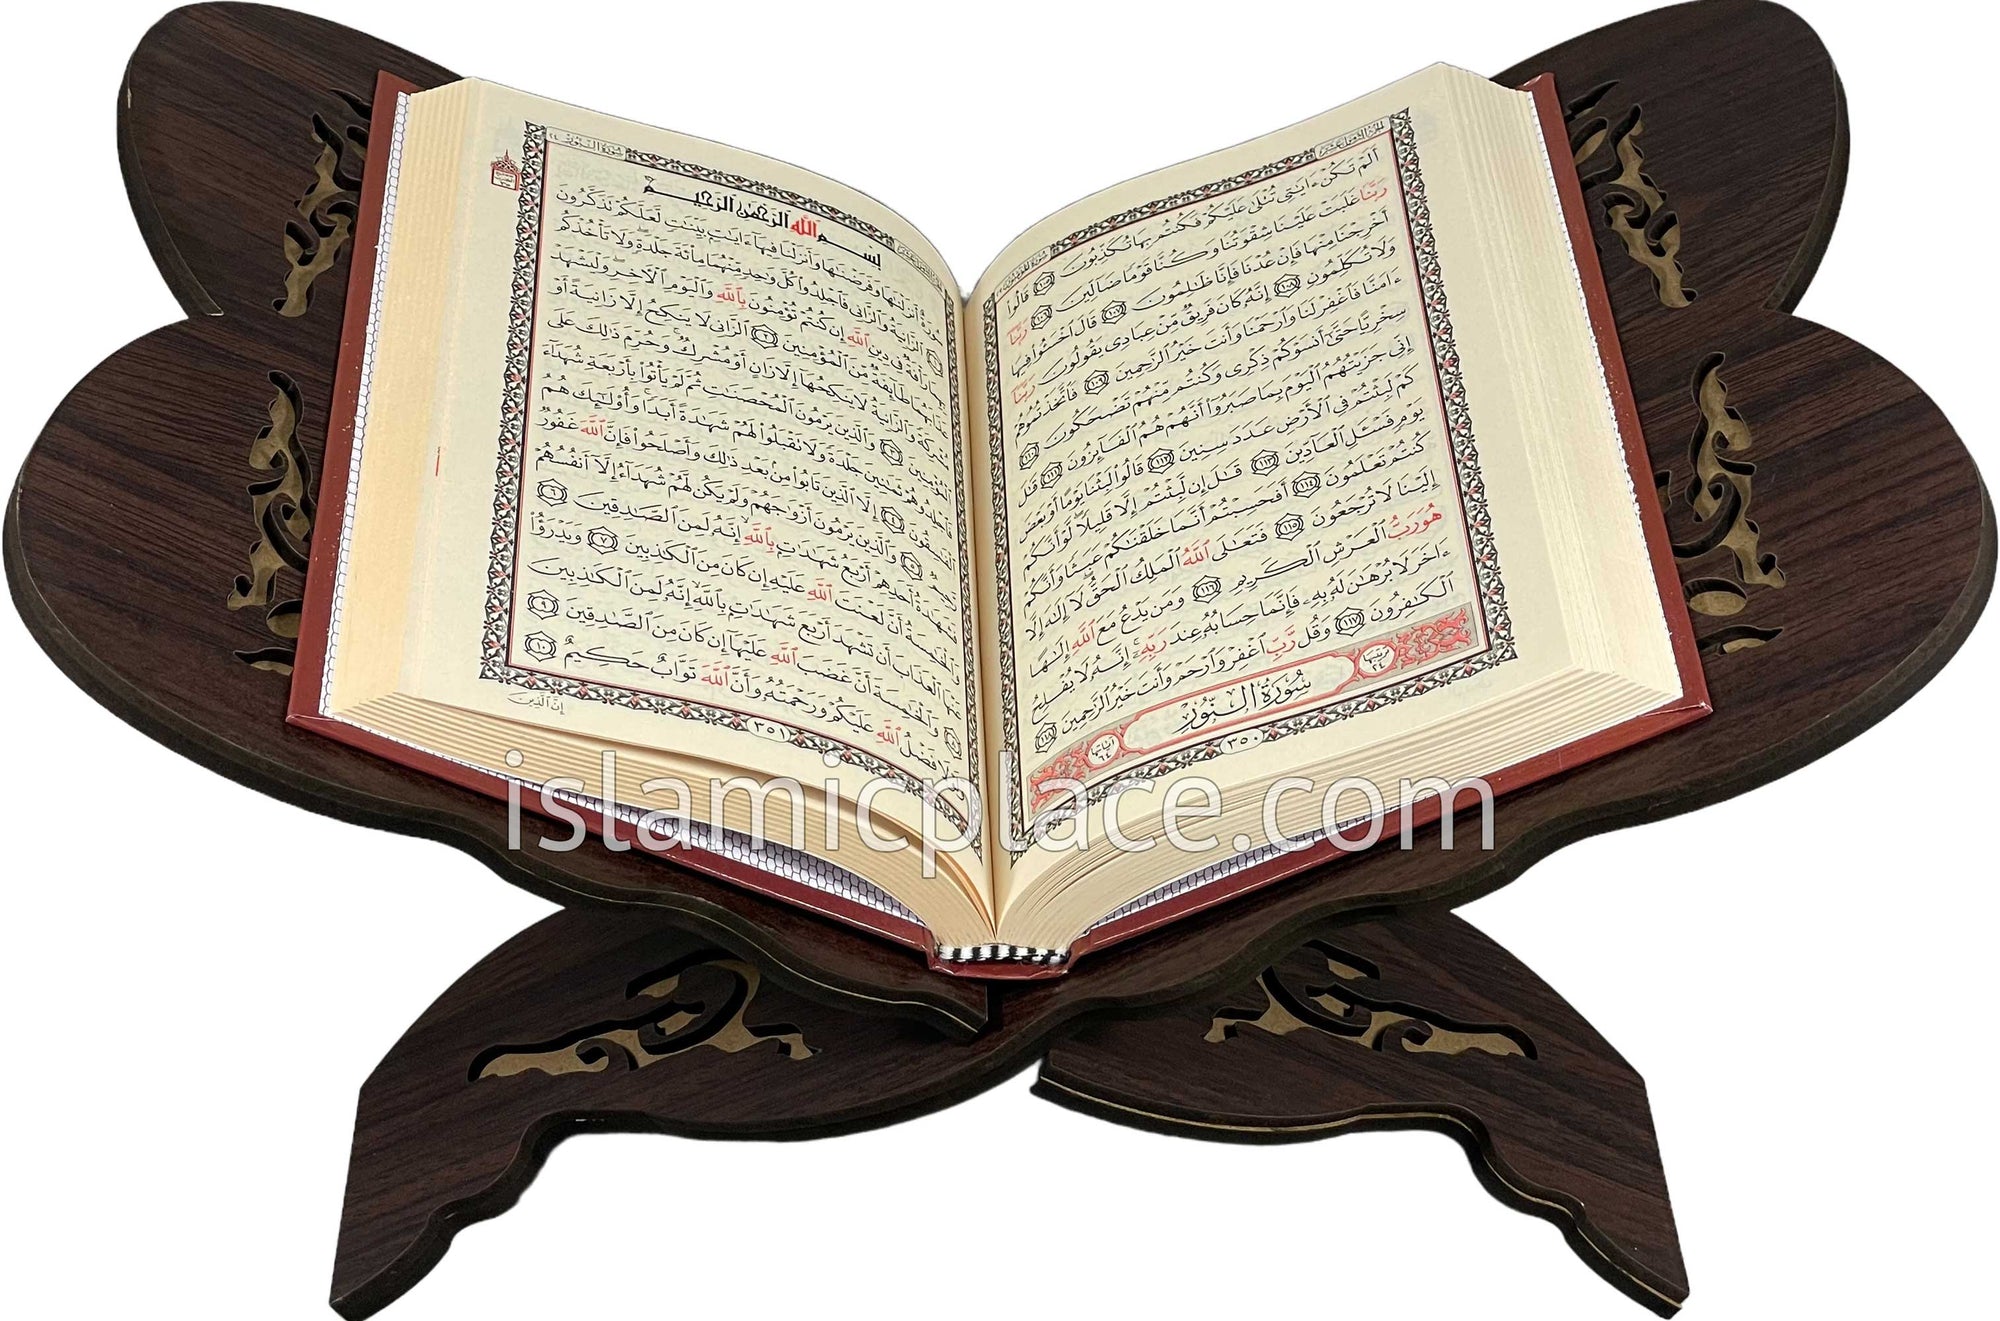 الجزء الثامن عشر سورة المؤمنون
أَلَمْ تَكُنْ ءَايَٰتِى تُتْلَىٰ عَلَيْكُمْ فَكُنتُم بِهَا تُكَذِّبُونَ ١٠٥ قَالُوا۟
رَبَّنَا غَلَبَتْ عَلَيْنَا شِقْوَتُنَا وَكُنَّا قَوْمًا ضَآلِّينَ ١٠٦ رَبَّنَآ
أَخْرِجْنَا مِنْهَا فَإِنْ عُدْنَا فَإِنَّا ظَٰلِمُونَ ١٠٧ قَالَ ٱخْسَـُٔوا۟ فِيهَا
وَلَا تُكَلِّمُونِ ١٠٨ إِنَّهُۥ كَانَ فَرِيقٌ مِّنْ عِبَادِى يَقُولُونَ رَبَّنَآ
ءَامَنَّا فَٱغْفِرْ لَنَا وَٱرْحَمْنَا وَأَنتَ خَيْرُ ٱلرَّٰحِمِينَ ١٠٩ فَٱتَّخَذْتُمُوهُمْ
سِخْرِيًّا حَتَّىٰٓ أَنسَوْكُمْ ذِكْرِى وَكُنتُم مِّنْهُمْ تَضْحَكُونَ ١١٠
إِنِّى جَزَيْتُهُمُ ٱلْيَوْمَ بِمَا صَبَرُوٓا۟ أَنَّهُمْ هُمُ ٱلْفَآئِزُونَ ١١١ قَٰلَ
كَمْ لَبِثْتُمْ فِى ٱلْأَرْضِ عَدَدَ سِنِينَ ١١٢ قَالُوا۟ لَبِثْنَا يَوْمًا أَوْ بَعْضَ
يَوْمٍ فَسْـَٔلِ ٱلْعَآدِّينَ ١١٣ قَٰلَ إِن لَّبِثْتُمْ إِلَّا قَلِيلًا ۖ لَّوْ أَنَّكُمْ
كُنتُمْ تَعْلَمُونَ ١١٤ أَفَحَسِبْتُمْ أَنَّمَا خَلَقْنَٰكُمْ عَبَثًا وَأَنَّكُمْ
إِلَيْنَا لَا تُرْجَعُونَ ١١٥ فَتَعَٰلَى ٱللَّهُ ٱلْمَلِكُ ٱلْحَقُّ ۖ لَآ إِلَٰهَ إِلَّا
هُوَ رَبُّ ٱلْعَرْشِ ٱلْكَرِيمِ ١١٦ وَمَن يَدْعُ مَعَ ٱللَّهِ إِلَٰهًا
ءَاخَرَ لَا بُرْهَٰنَ لَهُۥ بِهِۦ فَإِنَّمَا حِسَابُهُۥ عِندَ رَبِّهِۦٓ ۚ إِنَّهُۥ لَا يُفْلِحُ
ٱلْكَٰفِرُونَ ١١٧ وَقُل رَّبِّ ٱغْفِرْ وَٱرْحَمْ وَأَنتَ خَيْرُ ٱلرَّٰحِمِينَ ١١٨
ترتيبها ٢٤ سُورَةُ النُّورِ آياتها ٦٤
٣٥٠
سورة النور ٢٤
بِسْمِ ٱللَّهِ ٱلرَّحْمَٰنِ ٱلرَّحِيمِ
سُورَةٌ أَنزَلْنَٰهَا وَفَرَضْنَٰهَا وَأَنزَلْنَا فِيهَآ ءَايَٰتٍۭ بَيِّنَٰتٍ لَّعَلَّكُمْ تَذَكَّرُونَ
١ ٱلزَّانِيَةُ وَٱلزَّانِى فَٱجْلِدُوا۟ كُلَّ وَٰحِدٍ مِّنْهُمَا مِا۟ئَةَ جَلْدَةٍ ۖ وَلَا تَأْخُذْكُم
بِهِمَا رَأْفَةٌ فِى دِينِ ٱللَّهِ إِن كُنتُمْ تُؤْمِنُونَ بِٱللَّهِ وَٱلْيَوْمِ ٱلْءَاخِرِ ۖ وَلْيَشْهَدْ
عَذَابَهُمَا طَآئِفَةٌ مِّنَ ٱلْمُؤْمِنِينَ ٢ ٱلزَّانِى لَا يَنكِحُ إِلَّا زَانِيَةً أَوْ
مُشْرِكَةً وَٱلزَّانِيَةُ لَا يَنكِحُهَآ إِلَّا زَانٍ أَوْ مُشْرِكٌ ۚ وَحُرِّمَ ذَٰلِكَ عَلَى
ٱلْمُؤْمِنِينَ ٣ وَٱلَّذِينَ يَرْمُونَ ٱلْمُحْصَنَٰتِ ثُمَّ لَمْ يَأْتُوا۟ بِأَرْبَعَةِ شُهَدَآءَ
فَٱجْلِدُوهُمْ ثَمَٰنِينَ جَلْدَةً وَلَا تَقْبَلُوا۟ لَهُمْ شَهَٰدَةً أَبَدًا ۚ وَأُو۟لَٰٓئِكَ هُمُ
ٱلْفَٰسِقُونَ ٤ إِلَّا ٱلَّذِينَ تَابُوا۟ مِنۢ بَعْدِ ذَٰلِكَ وَأَصْلَحُوا۟ فَإِنَّ ٱللَّهَ غَفُورٌ
رَّحِيمٌ ٥ وَٱلَّذِينَ يَرْمُونَ أَزْوَٰجَهُمْ وَلَمْ يَكُن لَّهُمْ شُهَدَآءُ إِلَّآ أَنفُسُهُمْ
فَشَهَٰدَةُ أَحَدِهِمْ أَرْبَعُ شَهَٰدَٰتٍۭ بِٱللَّهِ ۙ إِنَّهُۥ لَمِنَ ٱلصَّٰدِقِينَ ٦
وَٱلْخَٰمِسَةُ أَنَّ لَعْنَتَ ٱللَّهِ عَلَيْهِ إِن كَانَ مِنَ ٱلْكَٰذِبِينَ ٧ وَيَدْرَؤُا۟
عَنْهَا ٱلْعَذَابَ أَن تَشْهَدَ أَرْبَعَ شَهَٰدَٰتٍۭ بِٱللَّهِ ۙ إِنَّهُۥ لَمِنَ ٱلْكَٰذِبِينَ
٨ وَٱلْخَٰمِسَةَ أَنَّ غَضَبَ ٱللَّهِ عَلَيْهَآ إِن كَانَ مِنَ ٱلصَّٰدِقِينَ ٩
وَلَوْلَا فَضْلُ ٱللَّهِ عَلَيْكُمْ وَرَحْمَتُهُۥ وَأَنَّ ٱللَّهَ تَوَّابٌ حَكِيمٌ ١٠
إن الذين
٣٥١
islamicplace.com